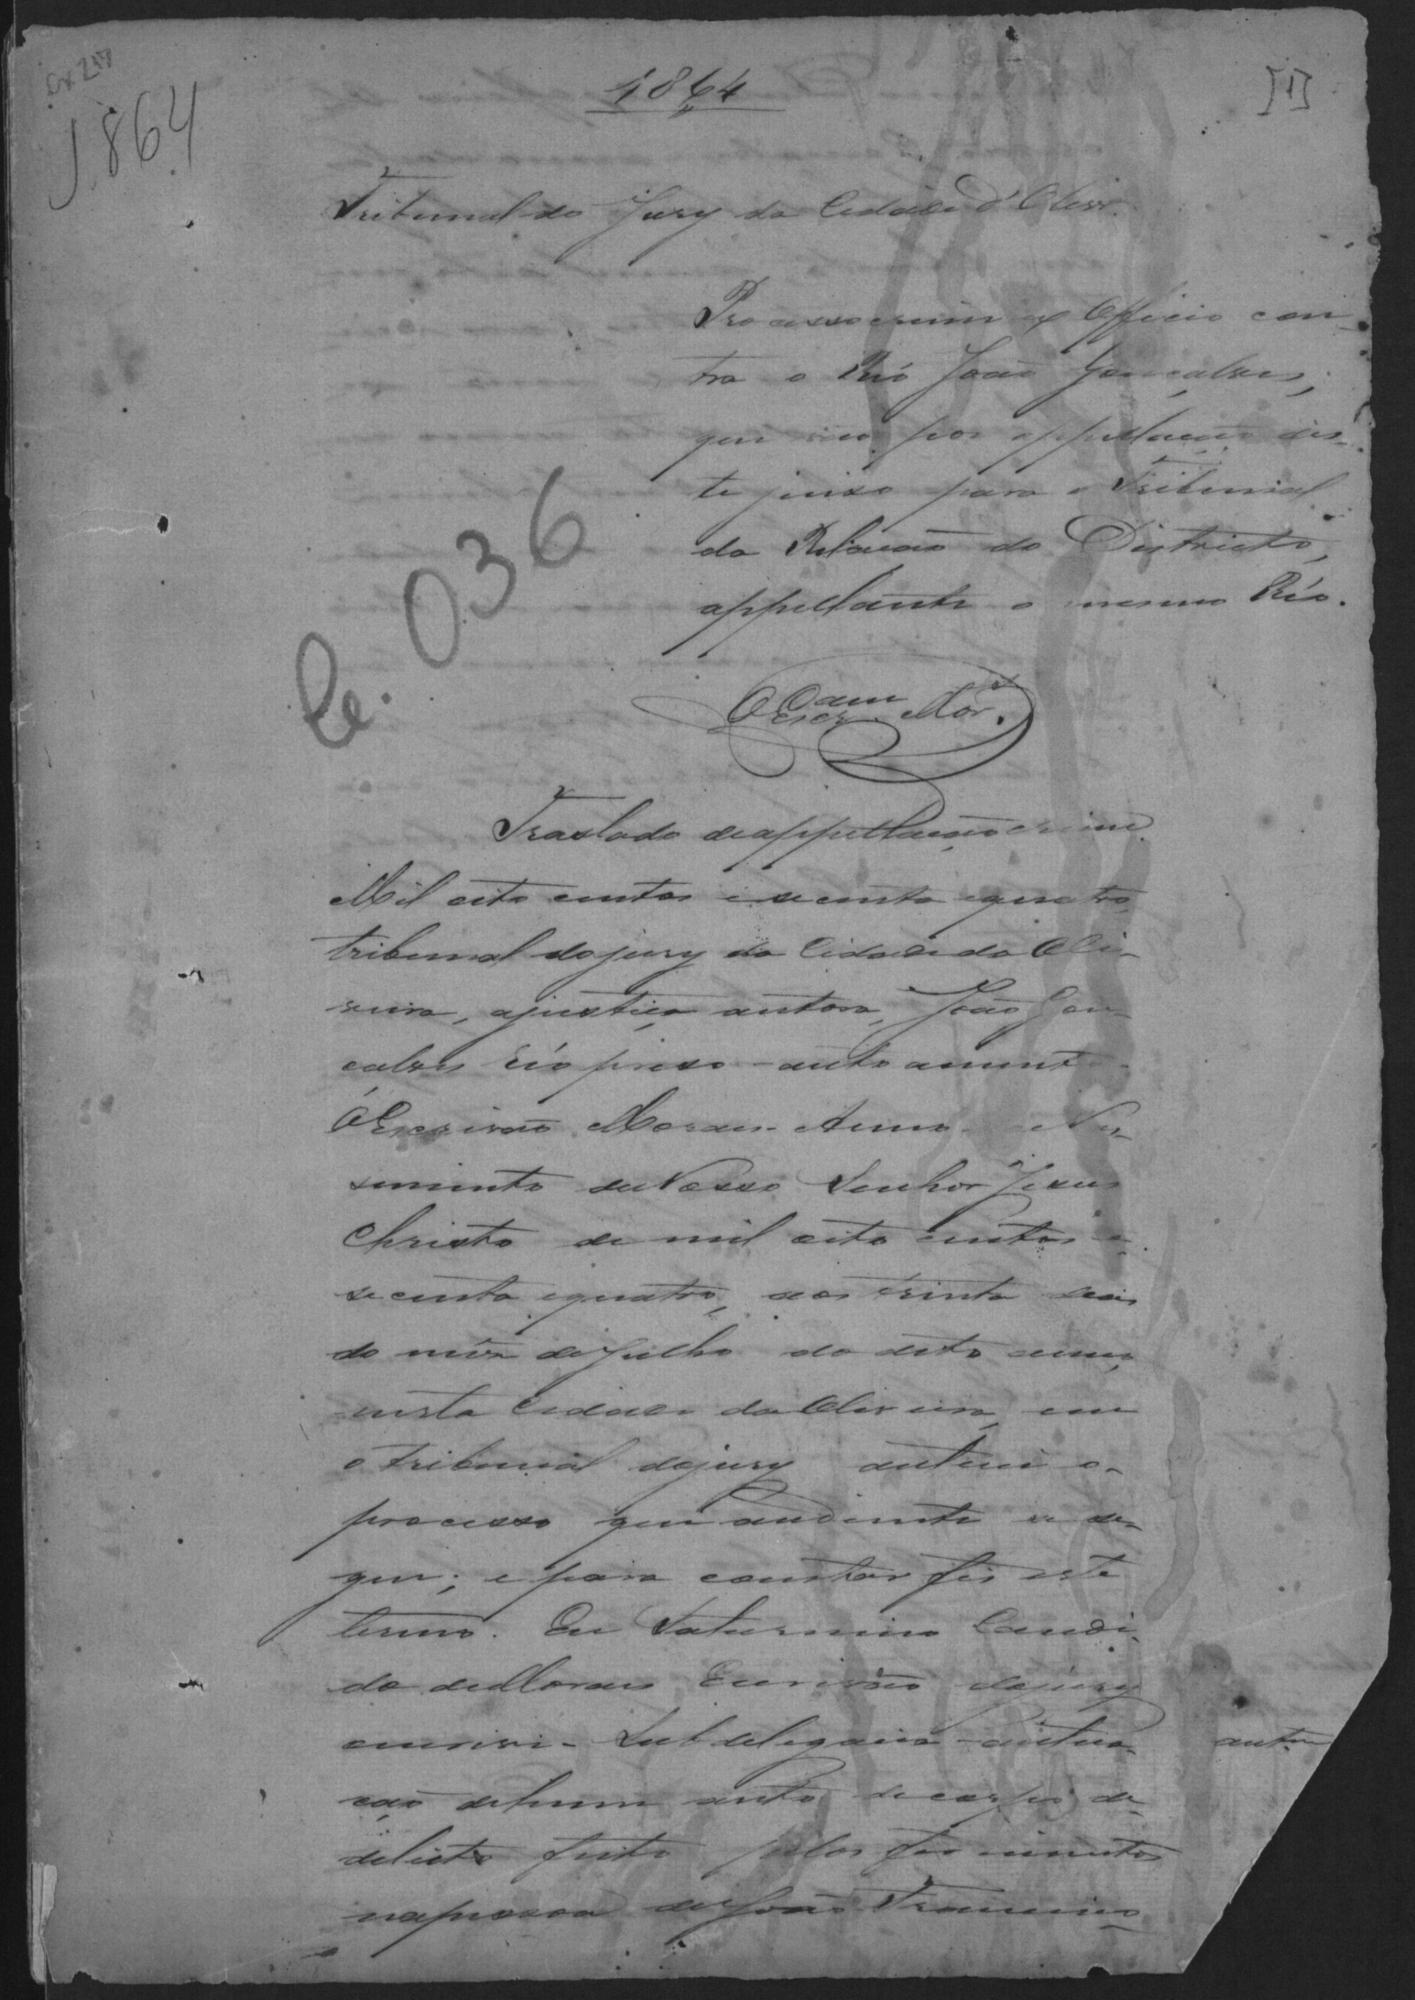 Cx 257
1864
1864
[1]
Tribunal do Jury da Cidade d'Olivrª
Processo crime ex Officio con-
tra o Reó João Gonçalves;
que vai por appellação des-
te juiso para o Tribunal
da Relação do Districto,
appellante o mesmo Réo.
C. 036
O Escrᵐ Mor.
Traslado de appellação crime
Mil oito centos e secenta e quatro,
tribunal do jury da Cidade da Oli-
veira, a justiça autora, João Gon-
çalves réo preso - autoamento -
O Escrivão Moraes. Anno do Nas-
cimento de Nosso Senhor Jesus
Christo de mil oito centos e
secenta e quatro, aos trinta dias
do mêz de Julho do dito anno,
nesta Cidade da Oliveira, em
o tribunal do jury autuei o
processo que aodiente se se-
gue; e para constar fis este
termo. Eu Saturnino Candi-
do de Moraes Escrivão do jury
escrivi - Subdelegacia - autua-
ção de hum auto de corpo de
delicto feito pelos ferimentos
na pessoa de João Francisco
auto